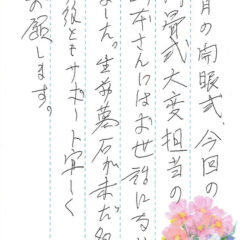 月の開眼式、今回の
骨式大変担当の
本さんにはお世話にな
ました。生前墓石が未だ
後ともサポート宜しく
お願します。